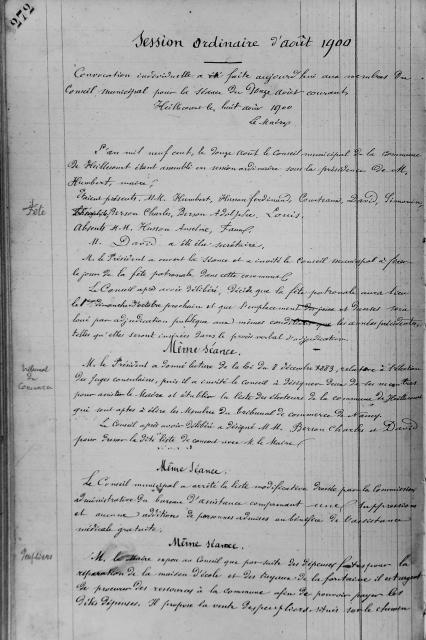 272
Session ordinaire d'août 1900
Convocation individuelle a été faite aujourd'hui aux membres du
Conseil municipal pour la séance du Douze août courant,
Heillecourt le, huit août 1900
Le Maire,
L'an mil neuf cent, le douze août le Conseil municipal de la commune
de Heillecourt étant assemblé en session ordinaire sous la présidence de M.
Humbert, maire;
Étaient présents, MM. Humbert, Husson ferdinand, Couteaux, David,
Fête
Berson Charles, Berson Adolphe, Louis.
Absents M.M. Husson Anselme,
M. David a été élu secrétaire,
M. le Président a ouvert la séance et a invité le Conseil municipal à fixer
le jour de la fête patronale dans cette commune.
Le Conseil après avoir délibéré, décide que la fête patronale aura lieu
le 1er dimanche d'octobre prochain et que l'emplacement des jeux et danses sera
loué par adjudication publique aux mêmes conditions que les années précédentes,
telles qu'elles seront insérées dans le procès verbal d'adjudication.
Même séance.
Tribunal
de
Commerce
M. le Président a donné lecture de la loi du 8 décembre 1883, relative à l'élection
des juges consulaires, puis il a invité le conseil à désigner deux de ses membres
pour assister le Maire et établir la liste des électeurs de la commune de Heillecourt
qui sont aptes à élire les Membres du tribunal de commerce de Nancy.
Le Conseil après avoir délibéré a désigné M.M. Berson Charles et David
pour dresser la dite liste de concert avec M. le Maire.
Même séance.
Le Conseil municipal a arrêté la liste modificative dressée par la Commission
administrative du bureau d'assistance comprenant une suppression
et aucune addition de personnes admises au bénéfice de l'assistance
médicale gratuite.
Même séance.
Peupliers
M. le Maire expose au Conseil que par suite des dépenses faites pour la
réparation de la maison d'école et des tuyaux de la fontaine il est urgent
de procurer des ressources à la commune afin de pouvoir payer les
dites dépenses. Il propose la vente des peupliers situés sur le chemin